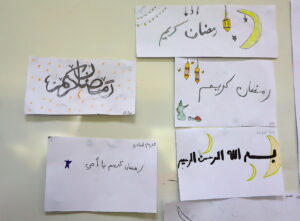 رمضان كريم
رمضان كريم
رمضان كريم
رمضان كريم يا أمي
بسم الله الرحمن الرحيم